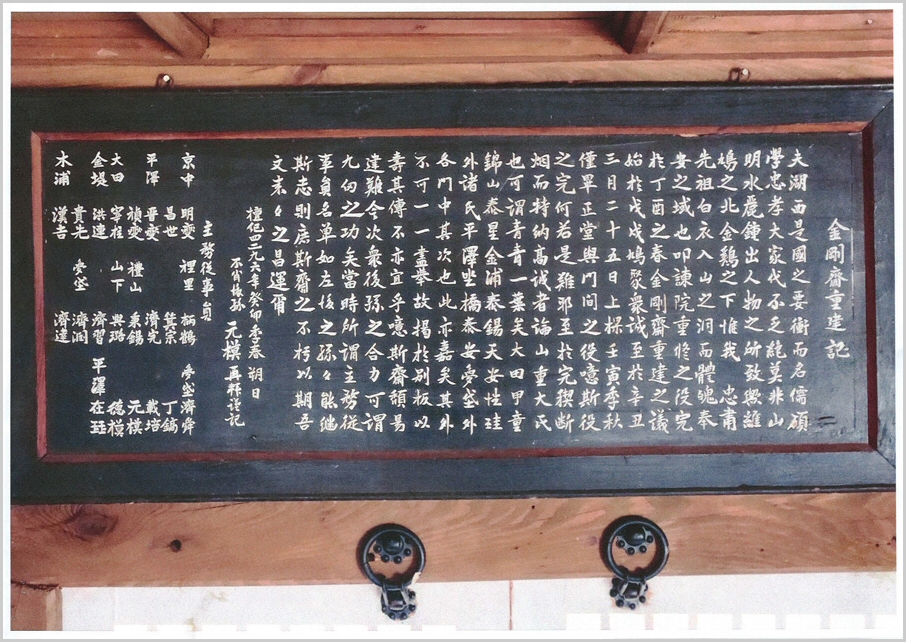 金剛齋重建記
夫湖西是國之要衝而名儒碩
學忠孝大家代不乏能莫非山
明水麗鍾出人物之所致與維
鳩之北金鷄之下惟我 忠肅
先祖白衣入山之洞而體魄奉
安之域也叩諫院重修之役完
於丁酉之春金剛齋重建之議
始於戊戌鳩聚衆誠至於辛丑
三月二十五日上樑壬寅季秋
僅畢正堂與門間之役噫斯役
之完何若是難耶至於完稧斷
烟而特納高誠者論山重大氏
也可謂青青一葉矣大田甲童
錦山泰星金浦泰錫天安性珪
外諸氏平澤坐橋泰安夢盛外
各門中其次也此亦嘉矣然而
不可一一盡舉故揭於別板以
壽其傳不亦宜乎噫斯齋頹易
達難今次㝡後孫之合力可謂
九仞之功矣當時所謂主務從
事員名單如左後之孫々能継
斯志則庶斯齋之不朽以期吾
文素々之昌運爾
檀紀四二九六年癸卯季春 朔 日
不肖後孫 元模 再拜謹記
主務從事員
京中 明夔 裡里 柄鶴 夢盛 濟舜
昌世 箕宗 丁鎬
平澤 晋夔 濟完 載培
禎夔 禮山 秉錫 元模
大田 寧柱 山下 興璐 德模
金堤 洪連 濟習 平澤在珏
貴先 夢盛 濟潤
木浦 漢吉 濟達